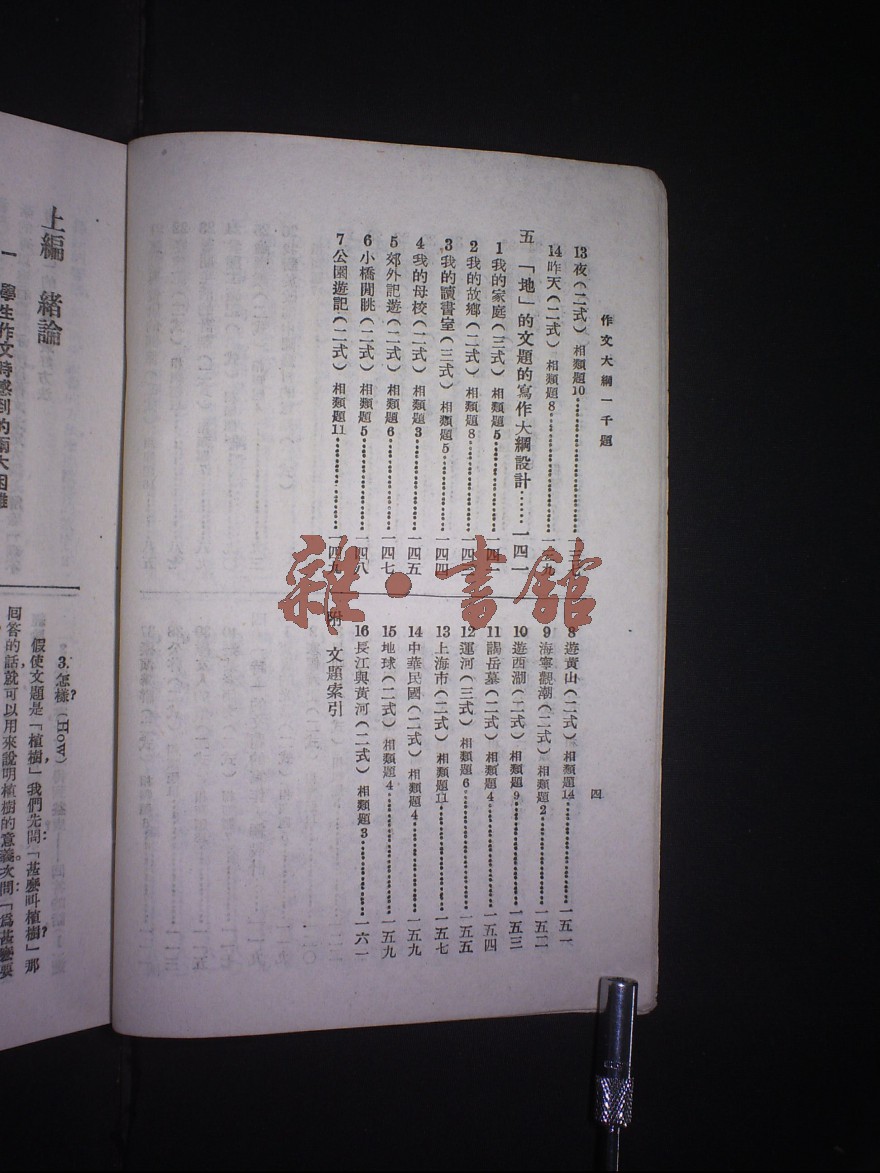 作文大綱一千題
四
13夜（二式）相類題10…………
14昨天（二式）相類題8…………
五　「地」的文題的寫作大綱設計……一四一
1我的家庭（三式）相類題5…………一四一
2我的故鄉（二式）相類題8…………
3我的讀書室（三式）相類題5…………一四四
4我的母校（二式）相類題3…………一四五
5郊外記遊（二式）相類題6…………一四七
6小橋閒眺（二式）相類題5…………一四八
7公園遊記（二式）相類題11…………一四九
8遊黃山（二式）相類題14…………一五一
9海寧觀潮（二式）相類題2…………一五二
10遊西湖（二式）相類題9…………一五三
11謁岳墓（二式）相類題4…………一五四
12運河（三式）相類題6…………一五五
13上海市（二式）相類題11…………一五七
14中華民國（二式）相類題4…………一五九
15地球（二式）相類題4…………一五九
16長江與黃河（二式）相類題3…………一六一
附　文題索引
雜·書館
上編　緒論
一　學生作文時感到的兩大困難
3.怎樣？（How）
假使文題是「植樹」，我們先問：「甚麼叫植樹？」那
回答的話就可以用來說明植樹的意義。次問：「爲甚麼要